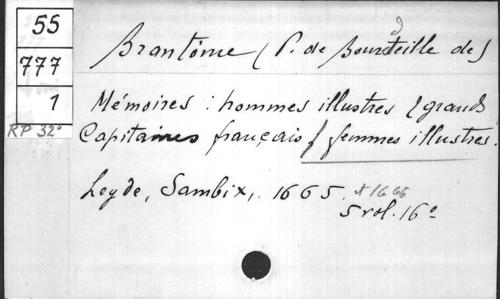 55
777
1
RP 32°
Brantôme (P. de Bourdeille de)
Mémoires : hommes illustres & grands
Capitaines français / femmes illustres.
Leyde, Sambix, 1665. & 1666
5 vol. 16°